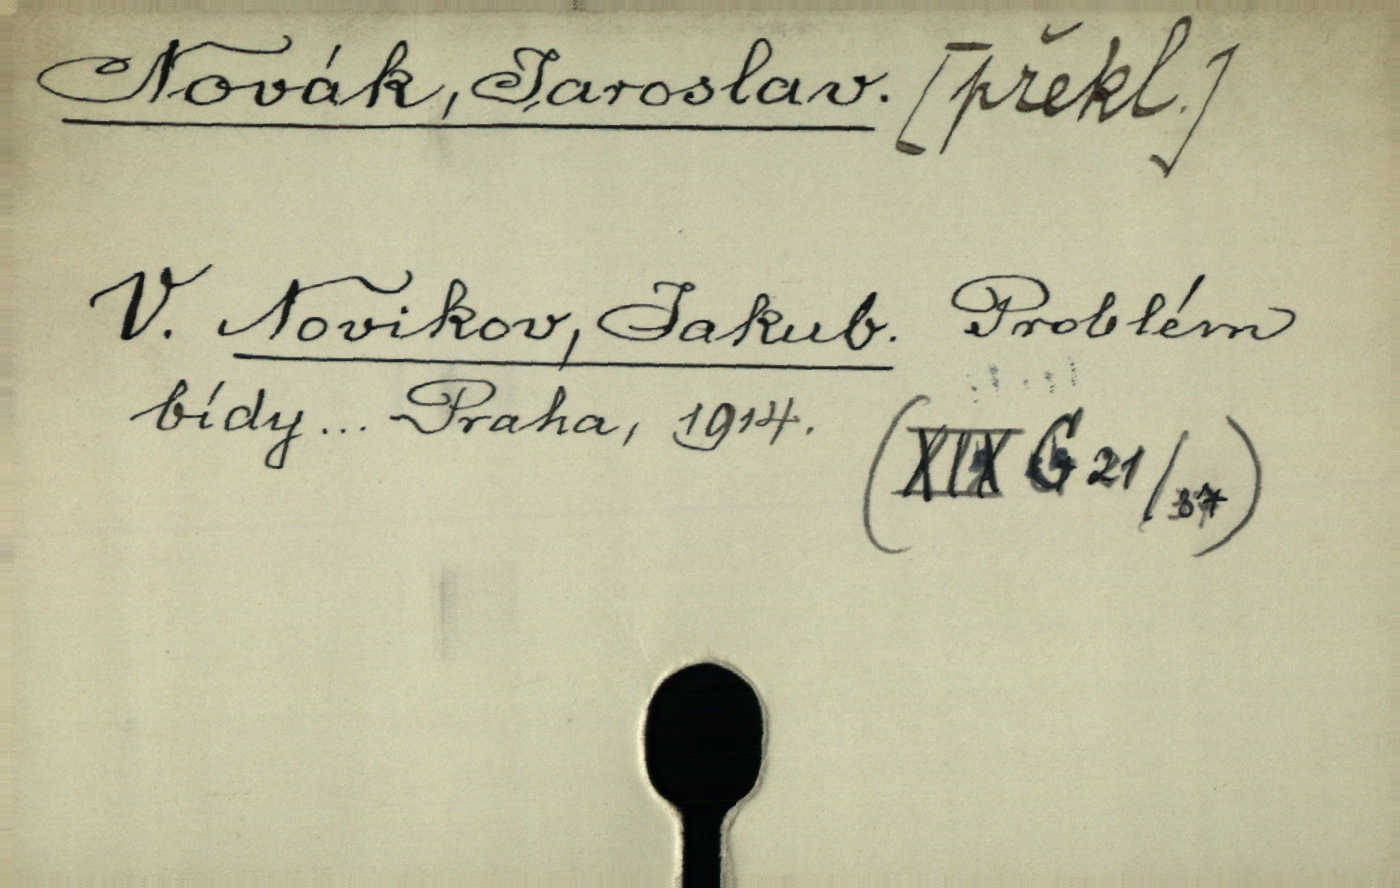 Novák, Jaroslav. [překl.]
V. Novikov, Jakub. Problém
bídy... Praha, 1914.
(XIX G 21/37)